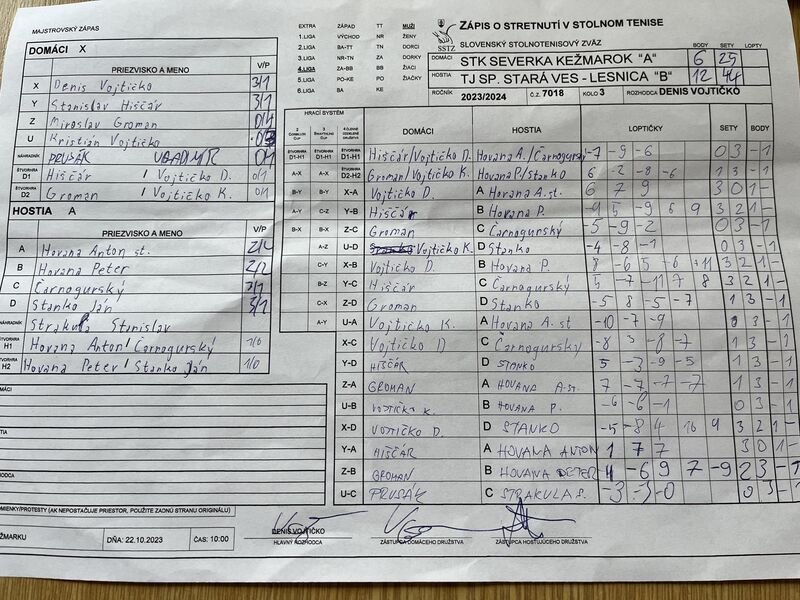 MAJSTROVSKÝ ZÁPAS
DOMÁCI X
PRIEZVISKO A MENO V/P
X Denis Vojtičko 3/1
Y Stanislav Hiščár 3/1
Z Miroslav Groman 0/4
U Kristián Vojtičko
NÁHRADNÍK PRUSÁK VLADIMÍR 0/1
ŠTVORHRA D1 Hiščár / Vojtičko D. 0/1
ŠTVORHRA D2 Groman / Vojtičko K. 0/1
HOSTIA A
PRIEZVISKO A MENO V/P
A Hovana Anton st. 2/2
B Hovana Peter 2/2
C Čarnogurský 3/1
D Stanko Ján 3/1
NÁHRADNÍK Strakula Stanislav
ŠTVORHRA H1 Hovana Anton / Čarnogurský 1/0
ŠTVORHRA H2 Hovana Peter / Stanko Ján 1/0
EXTRA ZÁPAD TT MUŽI
1.LIGA VÝCHOD NR ŽENY
2.LIGA BA-TT TN DORCI
3.LIGA NR-TN ZA DORKY
4.LIGA ZA-BB BB ŽIACI
5.LIGA PO-KE PO ŽIAČKY
6.LIGA BA KE
SSTZ
ZÁPIS O STRETNUTÍ V STOLNOM TENISE
SLOVENSKÝ STOLNOTENISOVÝ ZVÄZ
BODY SETY LOPTY
DOMÁCI STK SEVERKA KEŽMAROK "A" 6 25
HOSTIA TJ SP. STARÁ VES - LESNICA "B" 12 44
ROČNÍK 2023/2024 Č.Z. 7018 KOLO 3 ROZHODCA DENIS VOJTIČKO
HRACÍ SYSTÉM
DOMÁCI HOSTIA LOPTIČKY SETY BODY
D1-H1 D1-H1 D1-H1 Hiščár/Vojtičko D. Hovana A./Čarnogurský -7 -9 -6 0 3 -1
A-X A-X D2-H2 Groman/Vojtičko K. Hovana P/Stanko 6 -2 -8 -6 1 3 -1
B-Y B-Y X-A Vojtičko D. A Hovana A.st. 6 7 9 3 0 1-
A-Y C-Z Y-B Hiščár B Hovana P. -9 5 -9 6 9 3 2 1-
B-X B-X Z-C Groman C Čarnogurský -5 -9 -2 0 3 -1
A-Z U-D Vojtičko K. D Stanko -4 -8 -1 0 3 -1
C-Y X-B Vojtičko D. B Hovana P. 8 -6 5 -6 11 3 2 1-
B-Z Y-C Hiščár C Čarnogurský 5 -7 -11 7 8 3 2 1-
C-X Z-D Groman D Stanko -5 8 -5 -7 1 3 -1
A-Y U-A Vojtičko K. A Hovana A. st -10 -7 -9 0 3 -1
X-C Vojtičko D C Čarnogurský -8 3 -8 -7 1 3 -1
Y-D HIŠČÁR D STANKO 5 -3 -9 -5 1 3 -1
Z-A GROMAN A HOVANA A.ST. 7 -7 -7 -7 1 3 -1
U-B VOJTIČKO K. B HOVANA P. -6 -6 -1 0 3 -1
X-D VOJTIČKO D. D STANKO -5 -8 4 16 9 3 2 1-
Y-A HIŠČÁR A HOVANA ANTON 1 7 7 3 0 1-
Z-B GROMAN B HOVANA PETER 4 -6 9 7 -9 2 3 -1
U-C PRUSÁK C STRAKULA S. -3 -3 -0 0 3 -1
MIENKY/PROTESTY (AK NEPOSTAČUJE PRIESTOR, POUŽITE ZADNÚ STRANU ORIGINÁLU)
ŽMARKU DŇA: 22.10.2023 ČAS: 10:00
DENIS VOJTIČKO
HLAVNÝ ROZHODCA ZÁSTUPCA DOMÁCEHO DRUŽSTVA ZÁSTUPCA HOSŤUJÚCEHO DRUŽSTVA